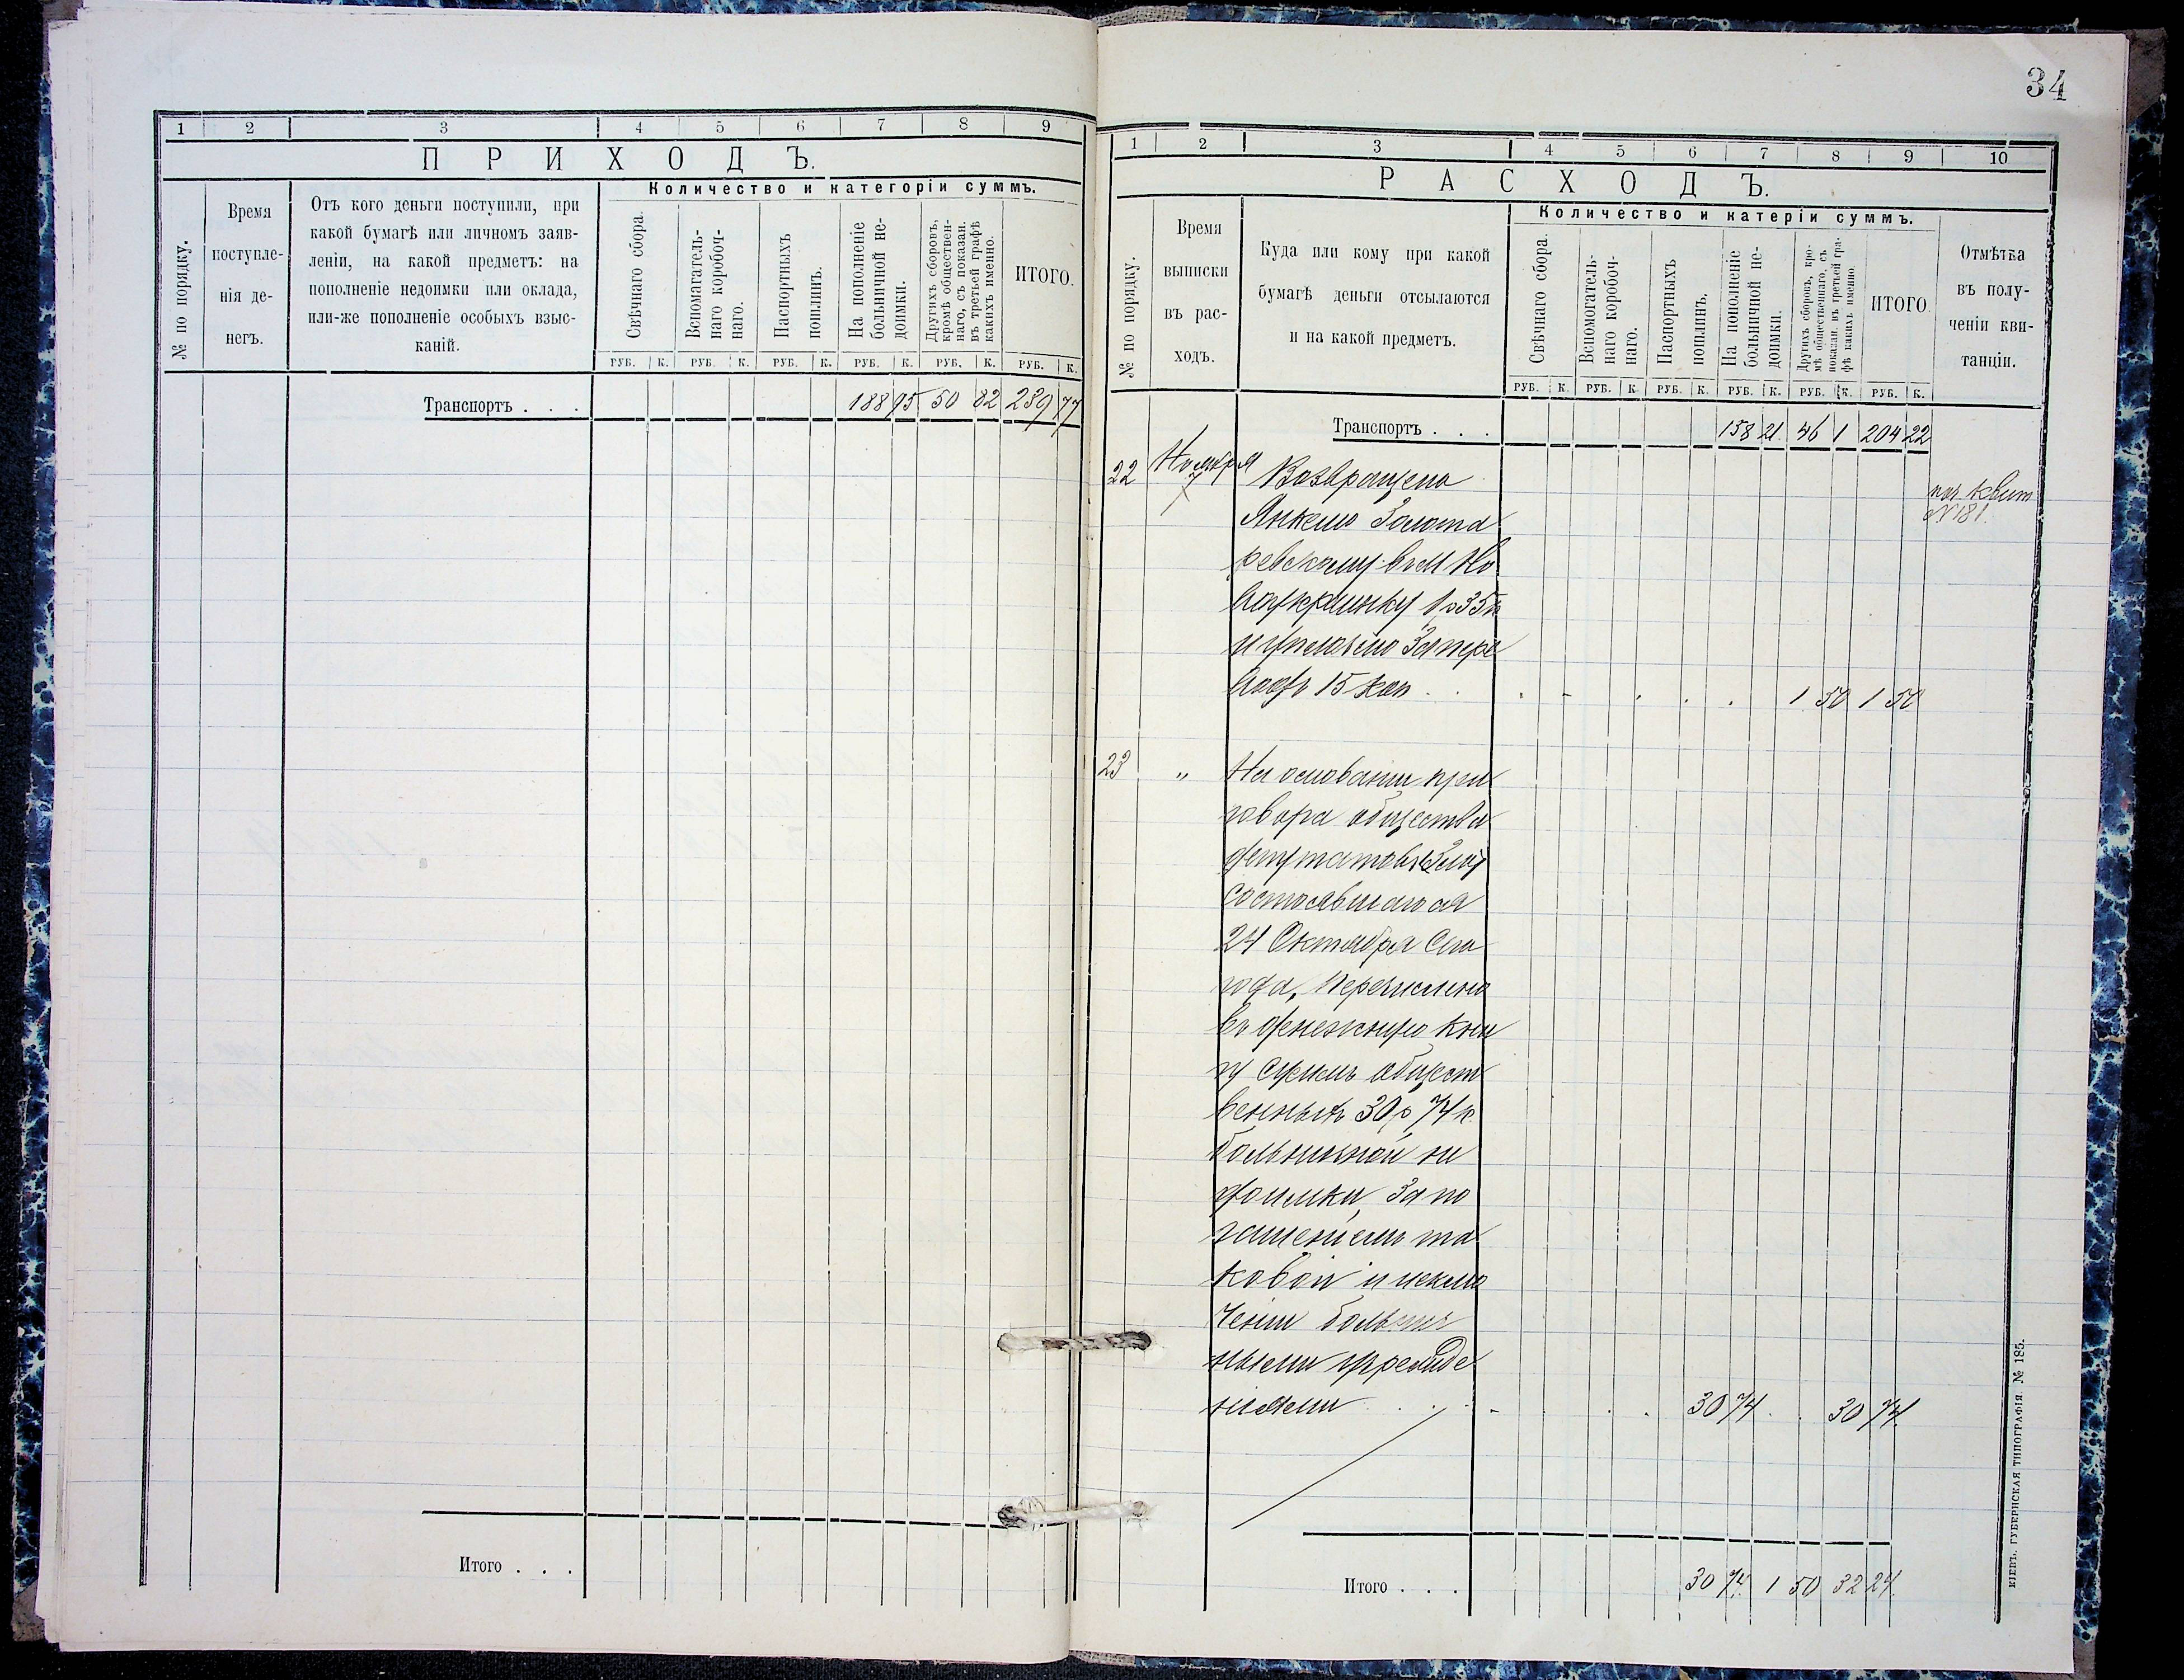 34
1 2 3 4 5 6 7 8 9
ПРИХОДЪ.
№ по порядку.
Время поступле-
нія де-
негъ.
Отъ кого деньги поступили, при
какой бумагѣ или личномъ заяв-
леніи, на какой предметъ: на
пополненіе недоимки или оклада,
или-же пополненіе особыхъ взыс-
каній.
Количество и категоріи суммъ.
Свѣчнаго сбора.
Вспомагатель-
наго коробоч-
наго.
Паспортныхъ
пошлинъ.
На пополненіе
больничной не-
доимки.
Другихъ сборовъ,
кромѣ обществен-
наго, съ показан.
въ третьей графѣ
какихъ именно.
ИТОГО.
РУБ. К. РУБ. К. РУБ. К. РУБ. К. РУБ. К. РУБ. К.
Транспортъ . . . 188 95 50 82 239 77
Итого . . .
1 2 3 4 5 6 7 8 9 10
РАСХОДЪ.
№ по порядку.
Время
выписки
въ рас-
ходъ.
Куда или кому при какой
бумагѣ деньги отсылаются
и на какой предметъ.
Количество и катеріи суммъ.
Свѣчнаго сбора.
Вспомагатель-
наго коробоч-
наго.
Паспортныхъ
пошлинъ.
На пополненіе
больничной не-
доимки.
Другихъ сборовъ, кро-
мѣ общественнаго, съ
показан. въ третьей гра-
фѣ какихъ именно.
ИТОГО.
Отмѣтка
въ полу-
ченіи кви-
танціи.
РУБ. К. РУБ. К. РУБ. К. РУБ. К. РУБ. К. РУБ. К.
Транспортъ . . . 158 21 46 1 204 22
22 Ноября 7 Возвращено
Янкелю Золота
ревскому въ м Но
воукраинку 1 р 35 к
и уплочено за пере
водъ 15 коп . . 1 50 1 50
квит
№ 181.
23 " На основаніи при
говора общества
депутатовъ
состоявшагося
24 Октября сего
года, перечислено
въ денежную кни
гу суммъ общест
венныхъ 30 р 74 к.
больничной не
доимки, за по
гашеніемъ та
ковой и исклю
ченіи больнич
ными учрежде
ніями . . . 30 74 . . 30 74
Итого . . . 30 74 1 50 32 24
КІЕВЪ. ГУБЕРНСКАЯ ТИПОГРАФІЯ. № 185.